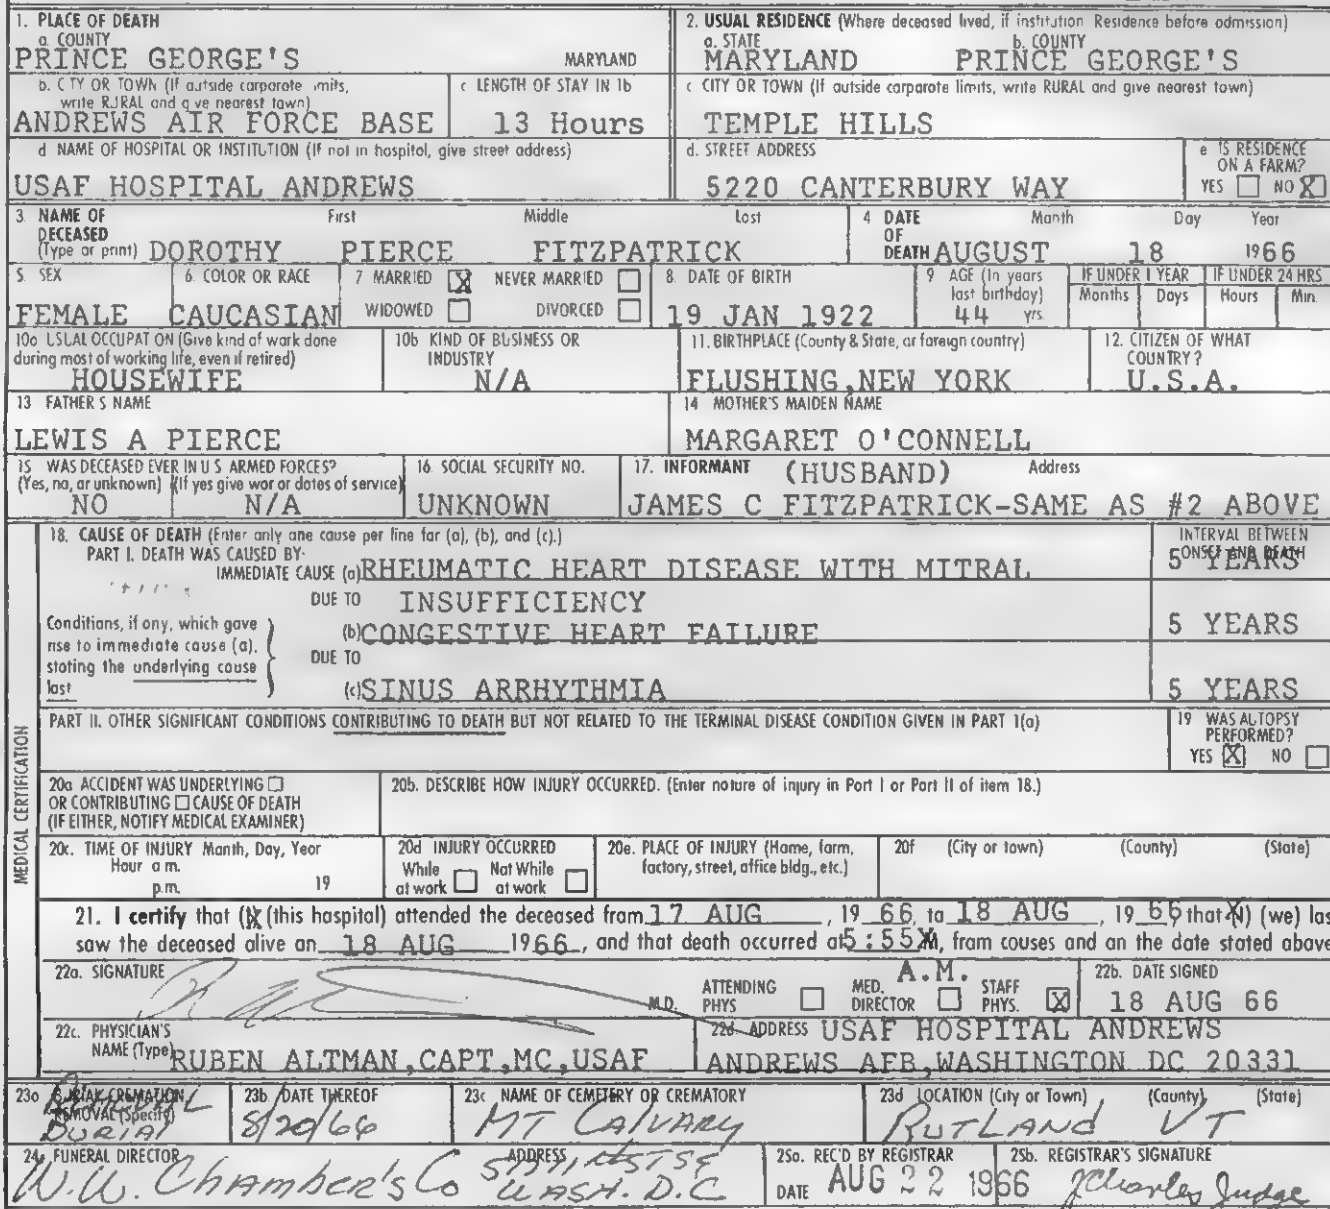 1. PLACE OF DEATH
a. COUNTY
PRINCE GEORGE'S MARYLAND
2. USUAL RESIDENCE (Where deceased lived, if institution Residence before admission)
a. STATE b. COUNTY
MARYLAND PRINCE GEORGE'S
b. C TY OR TOWN (If outside corporate imits,
write RURAL and g ve nearest town)
ANDREWS AIR FORCE BASE
c LENGTH OF STAY IN 1b
13 Hours
c CITY OR TOWN (If outside corporate limits, write RURAL and give nearest town)
TEMPLE HILLS
d NAME OF HOSPITAL OR INSTITUTION (If not in hospital, give street address)
USAF HOSPITAL ANDREWS
d. STREET ADDRESS
5220 CANTERBURY WAY
e IS RESIDENCE
ON A FARM?
YES NO X
3. NAME OF DECEASED
(Type or print)
First Middle Last
DOROTHY PIERCE FITZPATRICK
4 DATE OF DEATH
Month Day Year
AUGUST 18 1966
5. SEX
FEMALE
6. COLOR OR RACE
CAUCASIAN
7 MARRIED X NEVER MARRIED
WIDOWED DIVORCED
8. DATE OF BIRTH
19 JAN 1922
9 AGE (In years
last birthday)
44 yrs.
IF UNDER 1 YEAR
Months Days
IF UNDER 24 HRS
Hours Min.
10a USUAL OCCUPAT ON (Give kind of work done
during most of working life, even if retired)
HOUSEWIFE
10b KIND OF BUSINESS OR
INDUSTRY
N/A
11. BIRTHPLACE (County & State, or foreign country)
FLUSHING, NEW YORK
12. CITIZEN OF WHAT
COUNTRY?
U.S.A.
13 FATHER S NAME
LEWIS A PIERCE
14 MOTHER'S MAIDEN NAME
MARGARET O'CONNELL
15 WAS DECEASED EVER IN U S ARMED FORCES?
(Yes, no, or unknown) (If yes give war or dates of service)
NO N/A
16. SOCIAL SECURITY NO.
UNKNOWN
17. INFORMANT (HUSBAND) Address
JAMES C FITZPATRICK-SAME AS #2 ABOVE
MEDICAL CERTIFICATION
18. CAUSE OF DEATH (Enter only one cause per line for (a), (b), and (c).)
INTERVAL BETWEEN
ONSET AND DEATH
PART I. DEATH WAS CAUSED BY:
IMMEDIATE CAUSE (a) RHEUMATIC HEART DISEASE WITH MITRAL 5 YEARS
DUE TO INSUFFICIENCY
Conditions, if any, which gave
rise to immediate cause (a),
stating the underlying cause
last
(b) CONGESTIVE HEART FAILURE 5 YEARS
DUE TO
(c) SINUS ARRHYTHMIA 5 YEARS
PART II. OTHER SIGNIFICANT CONDITIONS CONTRIBUTING TO DEATH BUT NOT RELATED TO THE TERMINAL DISEASE CONDITION GIVEN IN PART I(a)
19 WAS AUTOPSY
PERFORMED?
YES X NO
20a ACCIDENT WAS UNDERLYING
OR CONTRIBUTING CAUSE OF DEATH
(IF EITHER, NOTIFY MEDICAL EXAMINER)
20b. DESCRIBE HOW INJURY OCCURRED. (Enter nature of injury in Part I or Part II of item 18.)
20c. TIME OF INJURY Month, Day, Year
Hour a m.
p.m. 19
20d INJURY OCCURRED
While at work Not While at work
20e. PLACE OF INJURY (Home, farm,
factory, street, office bldg., etc.)
20f (City or town) (County) (State)
21. I certify that (X (this hospital) attended the deceased from 17 AUG, 19 66, to 18 AUG, 19 66 that X) (we) las
saw the deceased alive on 18 AUG 1966, and that death occurred at 5:55 XM, from causes and on the date stated above
A.M.
22a. SIGNATURE
M.D.
ATTENDING PHYS
MED. DIRECTOR
STAFF PHYS. X
22b. DATE SIGNED
18 AUG 66
22c. PHYSICIAN'S
NAME (Type) RUBEN ALTMAN, CAPT, MC, USAF
22d ADDRESS USAF HOSPITAL ANDREWS
ANDREWS AFB, WASHINGTON DC 20331
23a BURIAL CREMATION,
REMOVAL (Specify)
BURIAL
23b. DATE THEREOF
8/20/66
23c NAME OF CEMETERY OR CREMATORY
MT CALVARY
23d LOCATION (City or Town) (County) (State)
RUTLAND VT
24. FUNERAL DIRECTOR ADDRESS
W.W. Chamber's Co
ST SE
WASH. D.C
25a. REC'D BY REGISTRAR
DATE AUG 22 1966
25b. REGISTRAR'S SIGNATURE
J Charles Judge